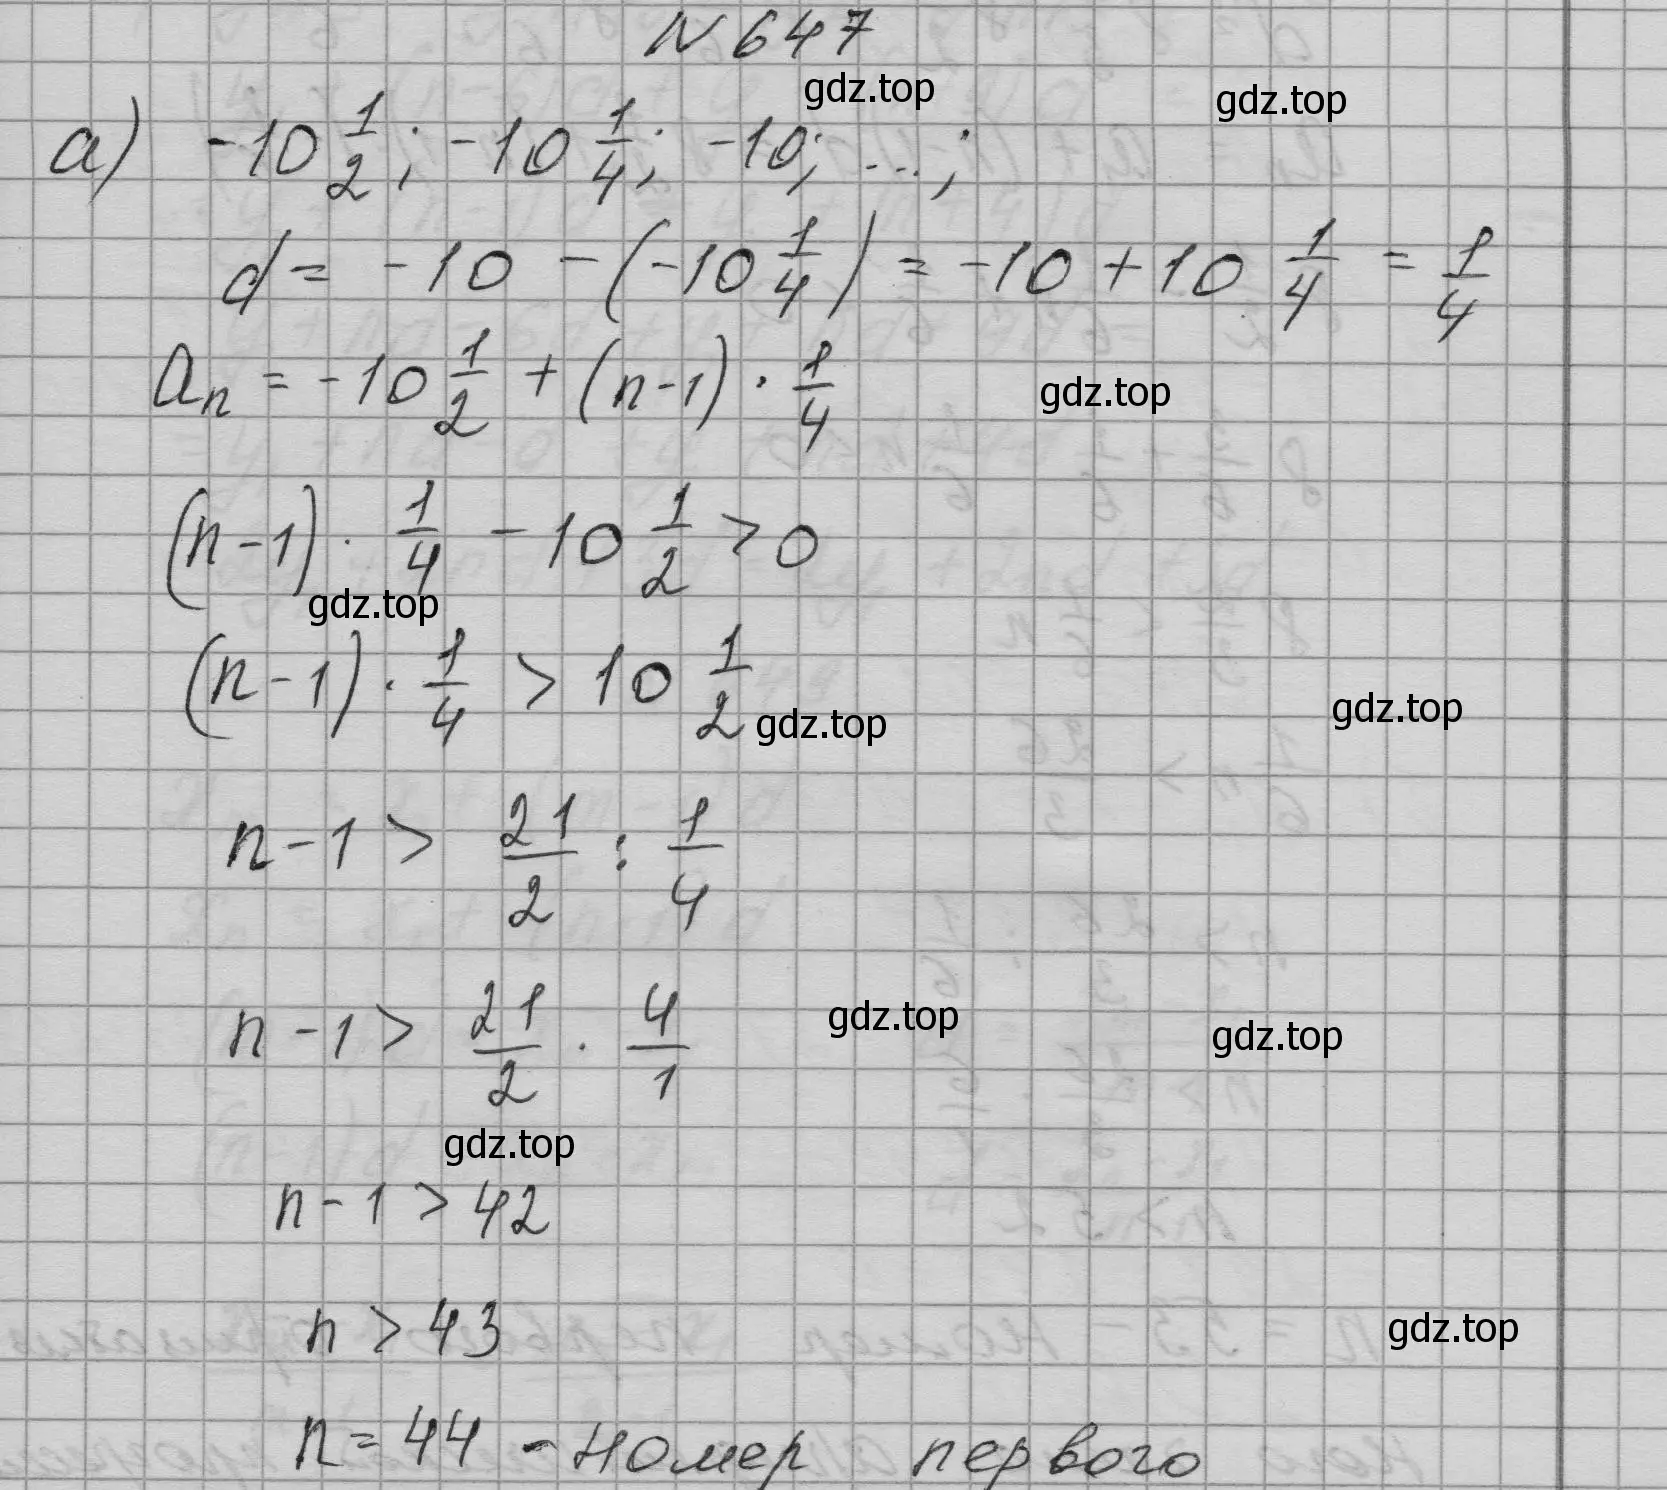 N 647
gdz.top
gdz.top
а) -10 1/2; -10 1/4; -10; ...;
d = -10 - (-10 1/4) = -10 + 10 1/4 = 1/4
aₙ = -10 1/2 + (n-1) · 1/4
gdz.top
(n-1) · 1/4 - 10 1/2 > 0
gdz.top
(n-1) · 1/4 > 10 1/2
gdz.top
gdz.top
n-1 > 21/2 : 1/4
n-1 > 21/2 · 4/1
gdz.top
gdz.top
gdz.top
n-1 > 42
n > 43
gdz.top
n = 44 - номер первого